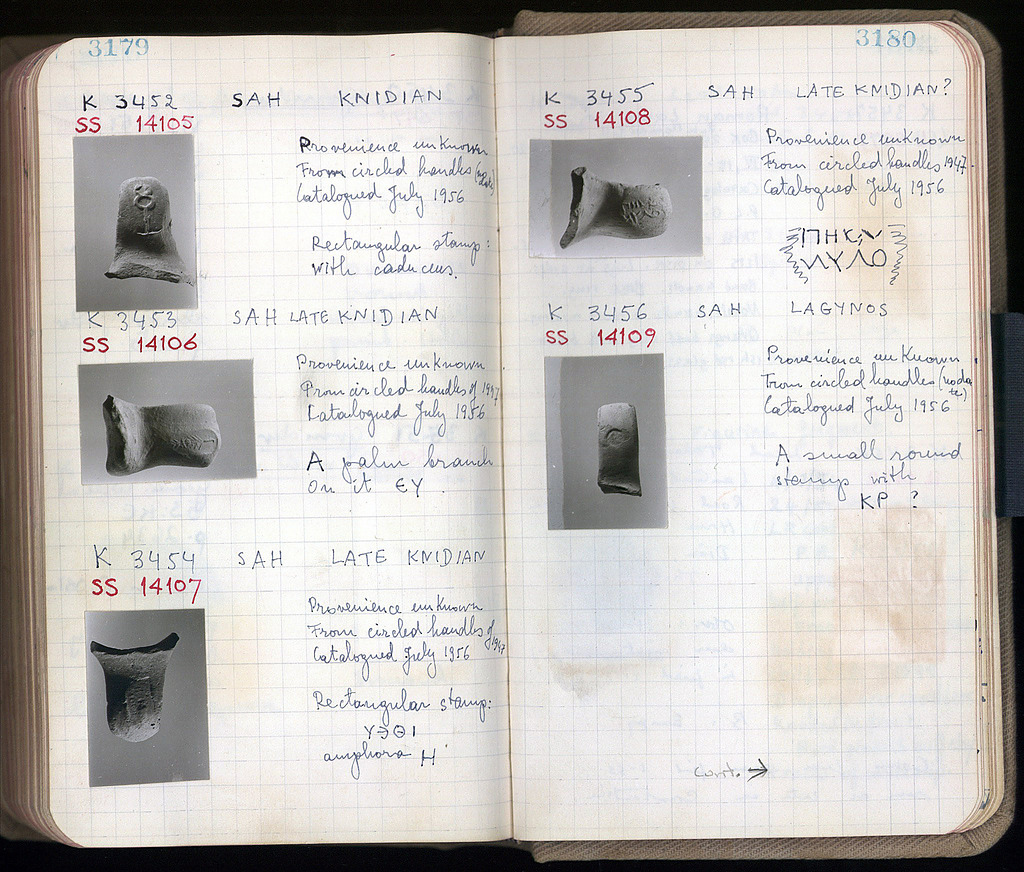 3179
K 3452 SAH KNIDIAN
SS 14105
Provenience unknown
From circled handles (no date)
Catalogued July 1956
Rectangular stamp:
with caduceus.
K 3453 SAH LATE KNIDIAN
SS 14106
Provenience unknown
From circled handles of 1947
Catalogued July 1956
A palm branch
On it ЄY.
K 3454 SAH LATE KNIDIAN
SS 14107
Provenience unknown
From circled handles of 1947
Catalogued July 1956
Rectangular stamp:
YЭΘI
amphora H
3180
K 3455 SAH LATE KNIDIAN?
SS 14108
Provenience unknown
From circled handles 1947.
Catalogued July 1956
ΠHK
ΛYΛO
K 3456 SAH LAGYNOS
SS 14109
Provenience unknown
From circled handles (no date)
Catalogued July 1956
A small round
stamp with
KP ?
Cont. →